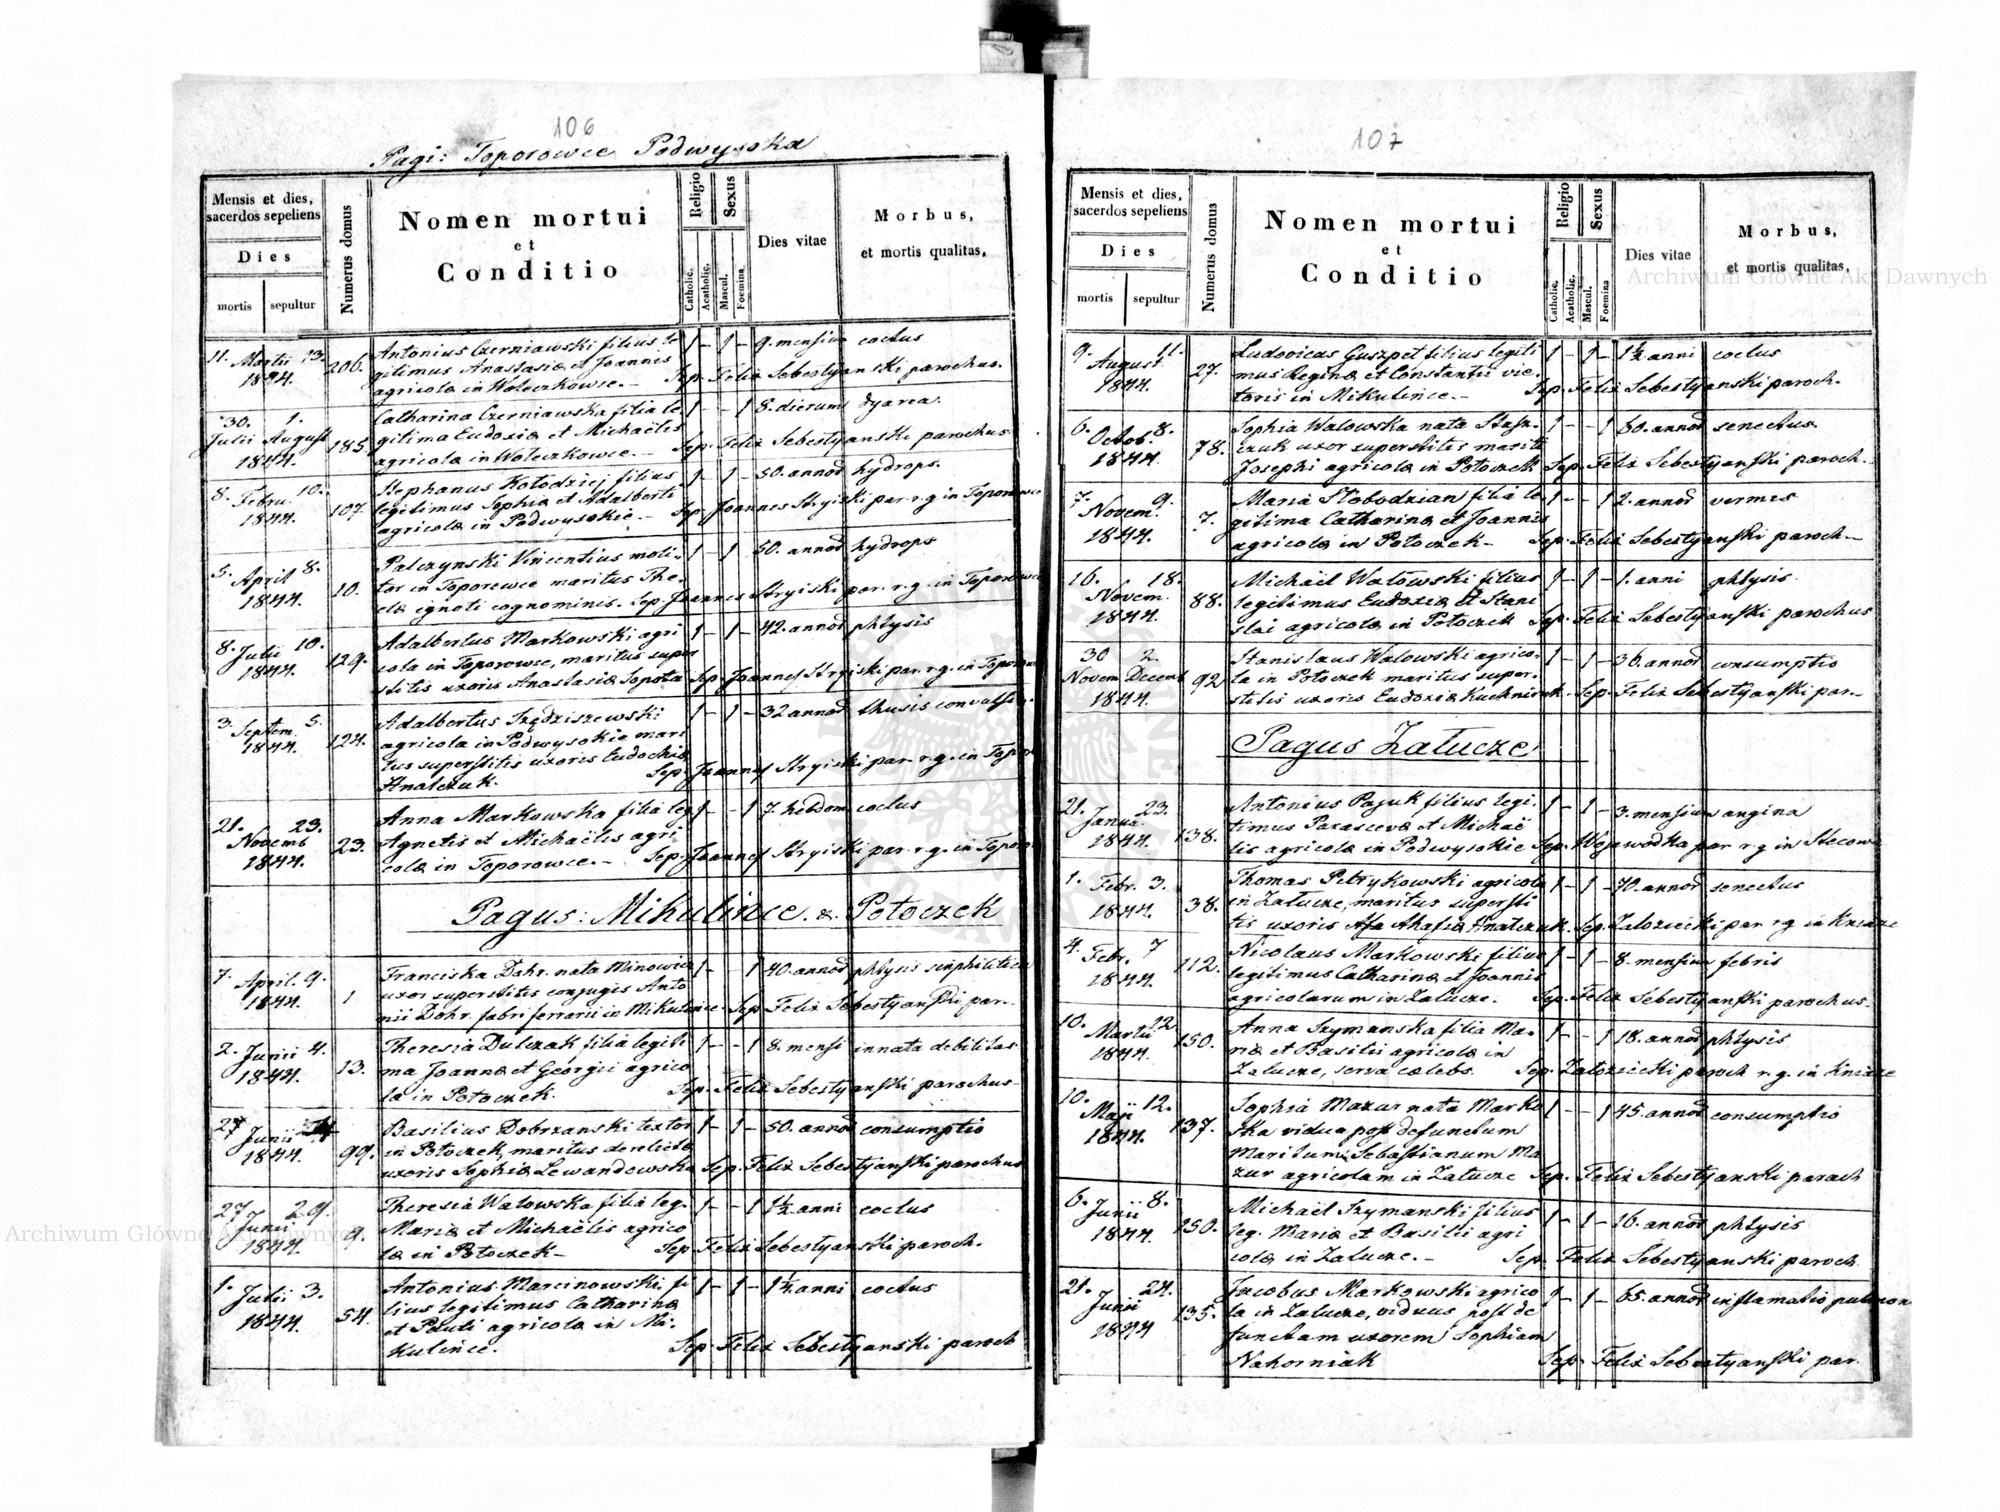 106
Pagi: Toporowce Podwysoka
Mensis et dies, sacerdos sepeliens
Dies
mortis sepultur
Numerus domus
Nomen mortui
et
Conditio
Religio
Catholic. Acatholic.
Sexus
Mascul. Foemina
Dies vitae
Morbus,
et mortis qualitas,
11. Martii 13. 206. Antonius Czerniawski filius le 1 – 1 – 9. mensium coctus
1844. gitimus Anastasiæ et Joannis
agricolæ in Wolczkowce. – Sep. Felix Sebestyanski parochus.
30. 1. Catharina Czerniawska filia le 1 – – 1 8. dierum dyarea.
Julii August 185. gitima Eudoxiæ et Michaëlis
1844. agricolæ in Wolczkowce. – Sep. Felix Sebestyanski parochus.
8. Febru. 10. Stephanus Kołodziej filius 1 – 1 – 50. annor hydrops.
1844. 107 legitimus Sophiæ et Adalberti
agricolæ in Podwysokie – Sep. Joannes Stryiski par. r. g. in Toporowce
5. April 8. Palczynski Vincentius moli- 1 – 1 – 50. annor hydrops
1844. 10. tor in Toporowce maritus The-
clæ ignoti cognominis. Sep. Joannes Stryiski par. r. g. in Toporowce
8. Julii 10. Adalbertus Markowski agri 1 – 1 – 42. annor phtysis
1844. 129. cola in Toporowce, maritus super
stitis uxoris Anastasiæ Sopota Sep. Joannes Stryiski par. r. g. in Toporow
3. Septem. 5. Adalbertus 1 – 1 – 32 annor
1844. 124. agricola in Podwysokie mari
tus superstitis uxoris Eudochiæ
Hnatczuk. Sep. Joannes Stryiski par. r. g. in Topor
21. 23. Anna Markowska filia leg 1 – – 1 7. hebdom coctus
Novemb 23. Agnetis et Michaëlis agri
1844. colæ in Toporowce. – Sep. Joannes Stryiski par. r. g. in Topor
Pagus: Mikulince. & Potoczek
7. April. 9. Franciska Dohr. nata Minowicz 1 – – 1 40. annor phtysis
1844. 1 uxor superstitis conjugis Anto
nii Dohr. fabri ferrarii in Mikulince – Sep. Felix Sebestyanski par–
2. Junii 4. Theresia Dulczak filia legiti 1 – – 1 8. mensi innata debilitas
1844. 13. ma Joannæ et Georgii agrico
læ in Potoczek. Sep. Felix Sebestyanski parochus–
27 Junii Basilius Dobrzanski textor 1 – 1 – 50. annor consumptio
1844. 99. in Potoczek, maritus derelictæ
uxoris Sophiæ Lewandowska Sep. Felix Sebestyanski parochus
27 29. Theresia Walowska filia leg. 1 – – 1 1½ anni coctus
Junii 9. Mariæ et Michaëlis agrico
1844. læ in Potoczek – Sep. Felix Sebestyanski paroch.
1. Julii 3. Antonius Marcinowski fi 1 – 1 – 1¼ anni coctus
1844. 54. lius legitimus Catharinæ
et Pauli agricolæ in Mi-
kulince. Sep. Felix Sebestyanski paroch
107
Mensis et dies, sacerdos sepeliens
Dies
mortis sepultur
Numerus domus
Nomen mortui
et
Conditio
Religio
Catholic. Acatholic.
Sexus
Mascul. Foemina
Dies vitae
Morbus,
et mortis qualitas,
9. 11. Ludovicus Guszpet filius legiti 1 – 1 – 1½ anni coctus
August 27. mus Reginæ et Constantii vie-
1844. toris in Mikulince. – Sep. Felix Sebestyanski paroch.
6. 8. Sophia Walowska nata 1 – – 1 60. annor senectus.
Octob. 78. uxor superstitis mariti
1844. Josephi agricolæ in Potoczek Sep. Felix Sebestyanski paroch.
7. 9. Maria Słobodzian filia le 1 – – 1 2. annor vermes
Novem. 7. gitima Catharinæ et Joannis
1844. agricolæ in Potoczek – Sep. Felix Sebestyanski paroch –
16. 18. Michaël Walowski filius 1 – 1 – 1. anni phtysis.
Novem. 88. legitimus Eudoxiæ et Stani
1844. slai agricolæ in Potoczek Sep. Felix Sebestyanski parochus
30 2. Stanislaus Walowski agrico- 1 – 1 – 36. annor consumptio
Novem Decemb 92 la in Potoczek maritus super-
1844. stitis uxoris Eudoxiæ Sep. Felix Sebestyanski par–
Pagus Załucze
21. 23. Antonius Pajuk filius legi- 1 – 1 – 3. mensium angina
Janua. 138. timus Parascevæ et Michaë
1844. lis agricolæ in Podwysokie Sep. Wojewodka par r g in Stecowa
1. Febr. 3. Thomas Petrykowski agricola 1 – 1 – 70. annor senectus
1844. 38. in Załucze, maritus supersti
tis uxoris Ahafiæ Hnatczuk. Sep. Zaloziecki par r g in Kniaze
4. Febr. 7 Nicolaus Markowski filius 1 – 1 – 8. mensium febris
1844. 112. legitimus Catharinæ et Joannis
agricolarum in Załucze. Sep. Felix Sebestyanski parochus.
10. Martii 12 Anna Szymanska filia Ma- 1 – – 1 18. annor phtysis
1844. 150. riæ et Basilii agricolæ in
Załucze, serva celebs. Sep. Zaloziecki paroch r. g. in Kniaze
10. Maji 12. Sophia Mazur nata Marko 1 – – 1 45. annor consumptio
1844. 137. ska vidua post defunctum
Maritum Sebastianum Ma
zur agricolam in Załucze Sep. Felix Sebestyanski paroch
6. Junii 8. Michaël Szymanski filius 1 – 1 – 16. annor phtysis
1844. 150. leg. Mariæ et Basilii agri
colæ in Załucze. – Sep. Felix Sebestyanski paroch.
21. 24. Jacobus Markowski agrico 1 – 1 – 65. annor inflamatio pulmon
Junii 135. la in Załucze, viduus post de
1844 functam uxorem Sophiam
Nahorniak Sep. Felix Sebestyanski par.
Archiwum Główne Akt Dawnych
Archiwum Główne Akt Dawnych